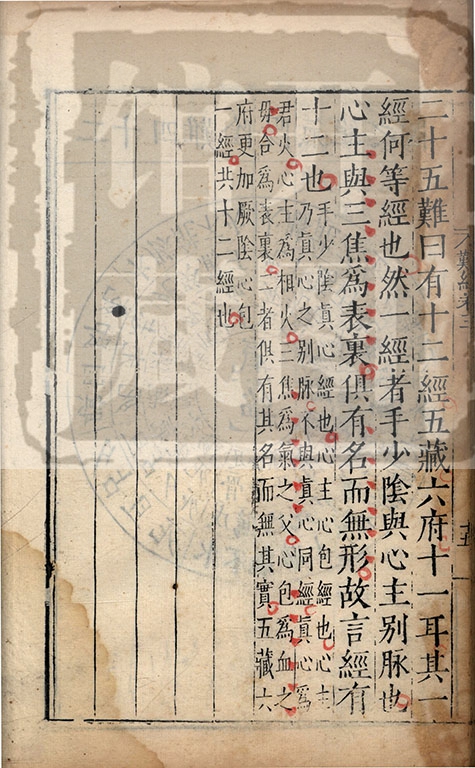 二十五難曰有十二經五藏六府十一耳其一
經何等經也然一經者手少陰與心主別脉也
心主與三焦為表裏俱有名而無形故言經有
十二也手少陰真心經也心主心包經也心主
乃真心之別脉不與真心同經真心為
君火心主為相火三焦為氣之父心包為血之
母合為表裏二者俱有其名而無其實五藏六
府更加厥陰心包
一經共十二經也